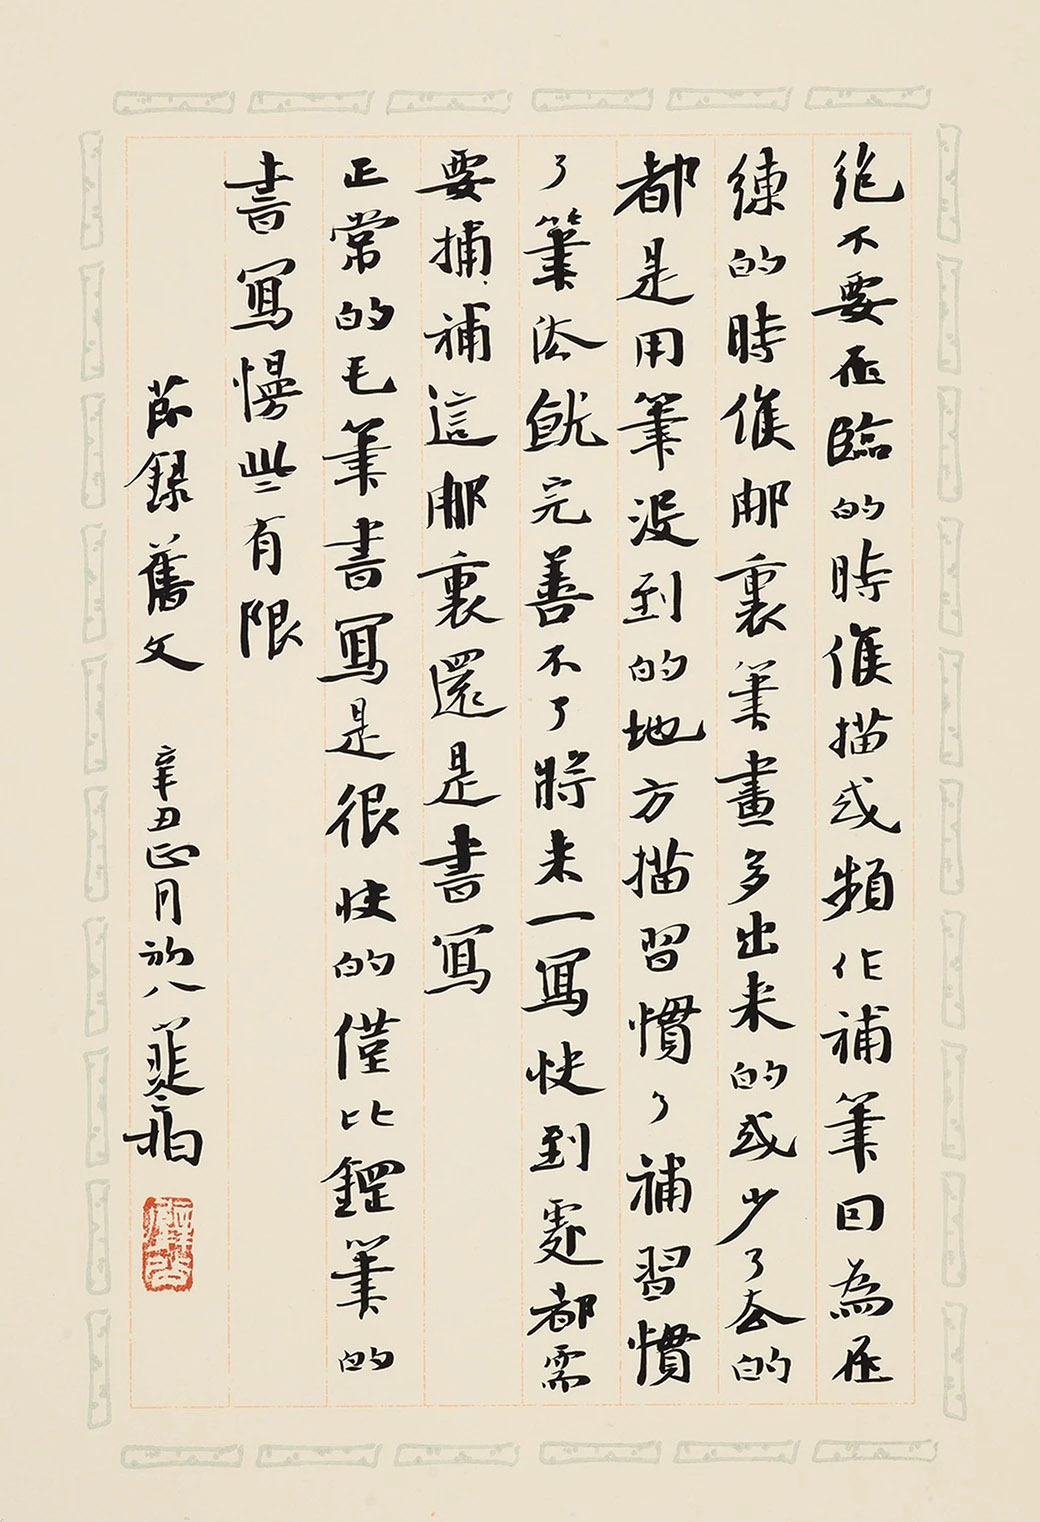 絕不要在臨的時候描或頻作補筆因為在
練的時候那裏筆畫多出來的或少了去的
都是用筆沒到的地方描習慣了補習慣
了筆法就完善不了將来一寫快到處都需
要捕補這那裏還是書寫
正常的毛筆書寫是很快的僅比鋼筆的
書寫慢些有限
節錄舊文 辛丑正月初八